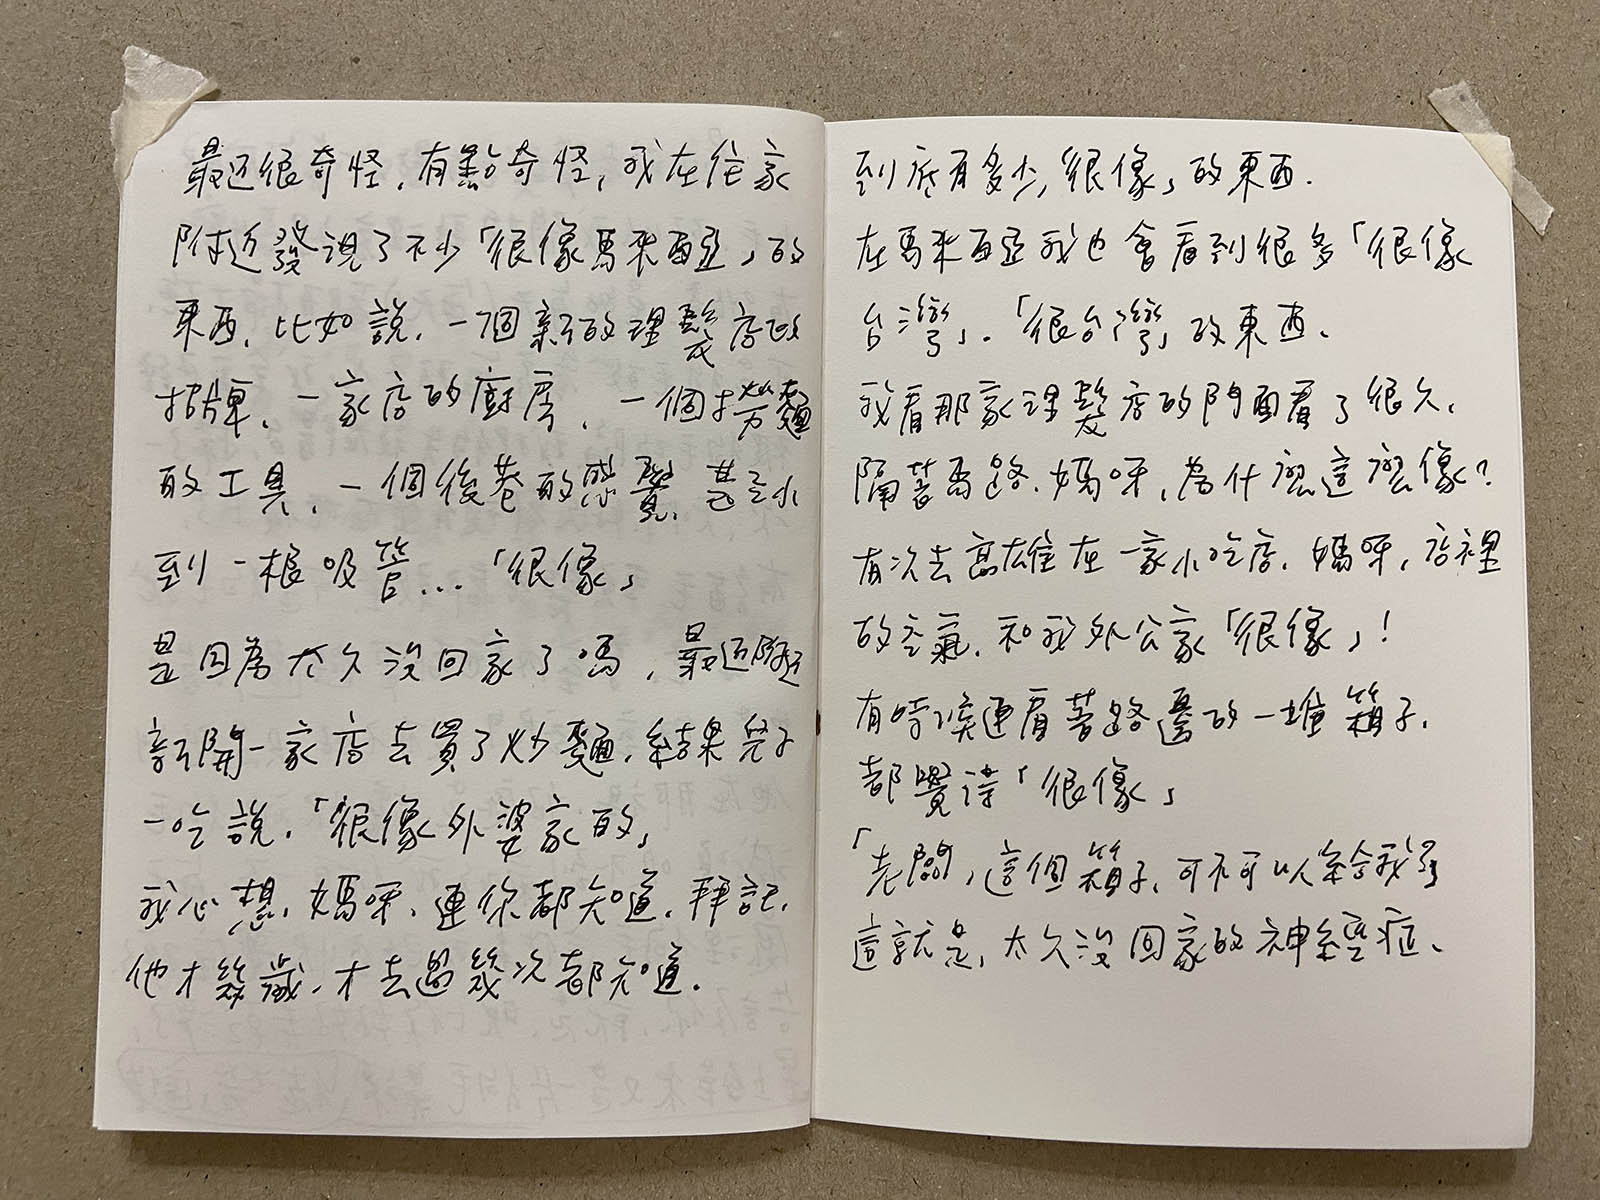 最近很奇怪,有點奇怪,我在住家
附近發現了不少「很像馬來西亞」的
東西,比如說,一個新的理髮店的
招牌,一家店的廚房,一個撈麵
的工具,一個後巷的感覺,甚至小
到一根吸管...「很像」
是因為太久沒回家了嗎,最近附近
新開一家店去買了炒麵,結果兒子
一吃說,「很像外婆家的」
我心想,媽呀,連你都知道,拜託,
他才幾歲,才去過幾次都知道.
到底有多少「很像」的東西.
在馬來西亞我也會看到很多「很像
台灣」.「很台灣」的東西、
我看那家理髮店的門面看了很久,
隔著馬路,媽呀,為什麼這麼像?
有次去高雄在一家小吃店,媽呀,店裡
的空氣,和我外公家「很像」!
有時候連看著路邊的一堆箱子,
都覺得「很像」
「老闆,這個箱子,可不可以給我」
這就是,太久沒回家的神經症、